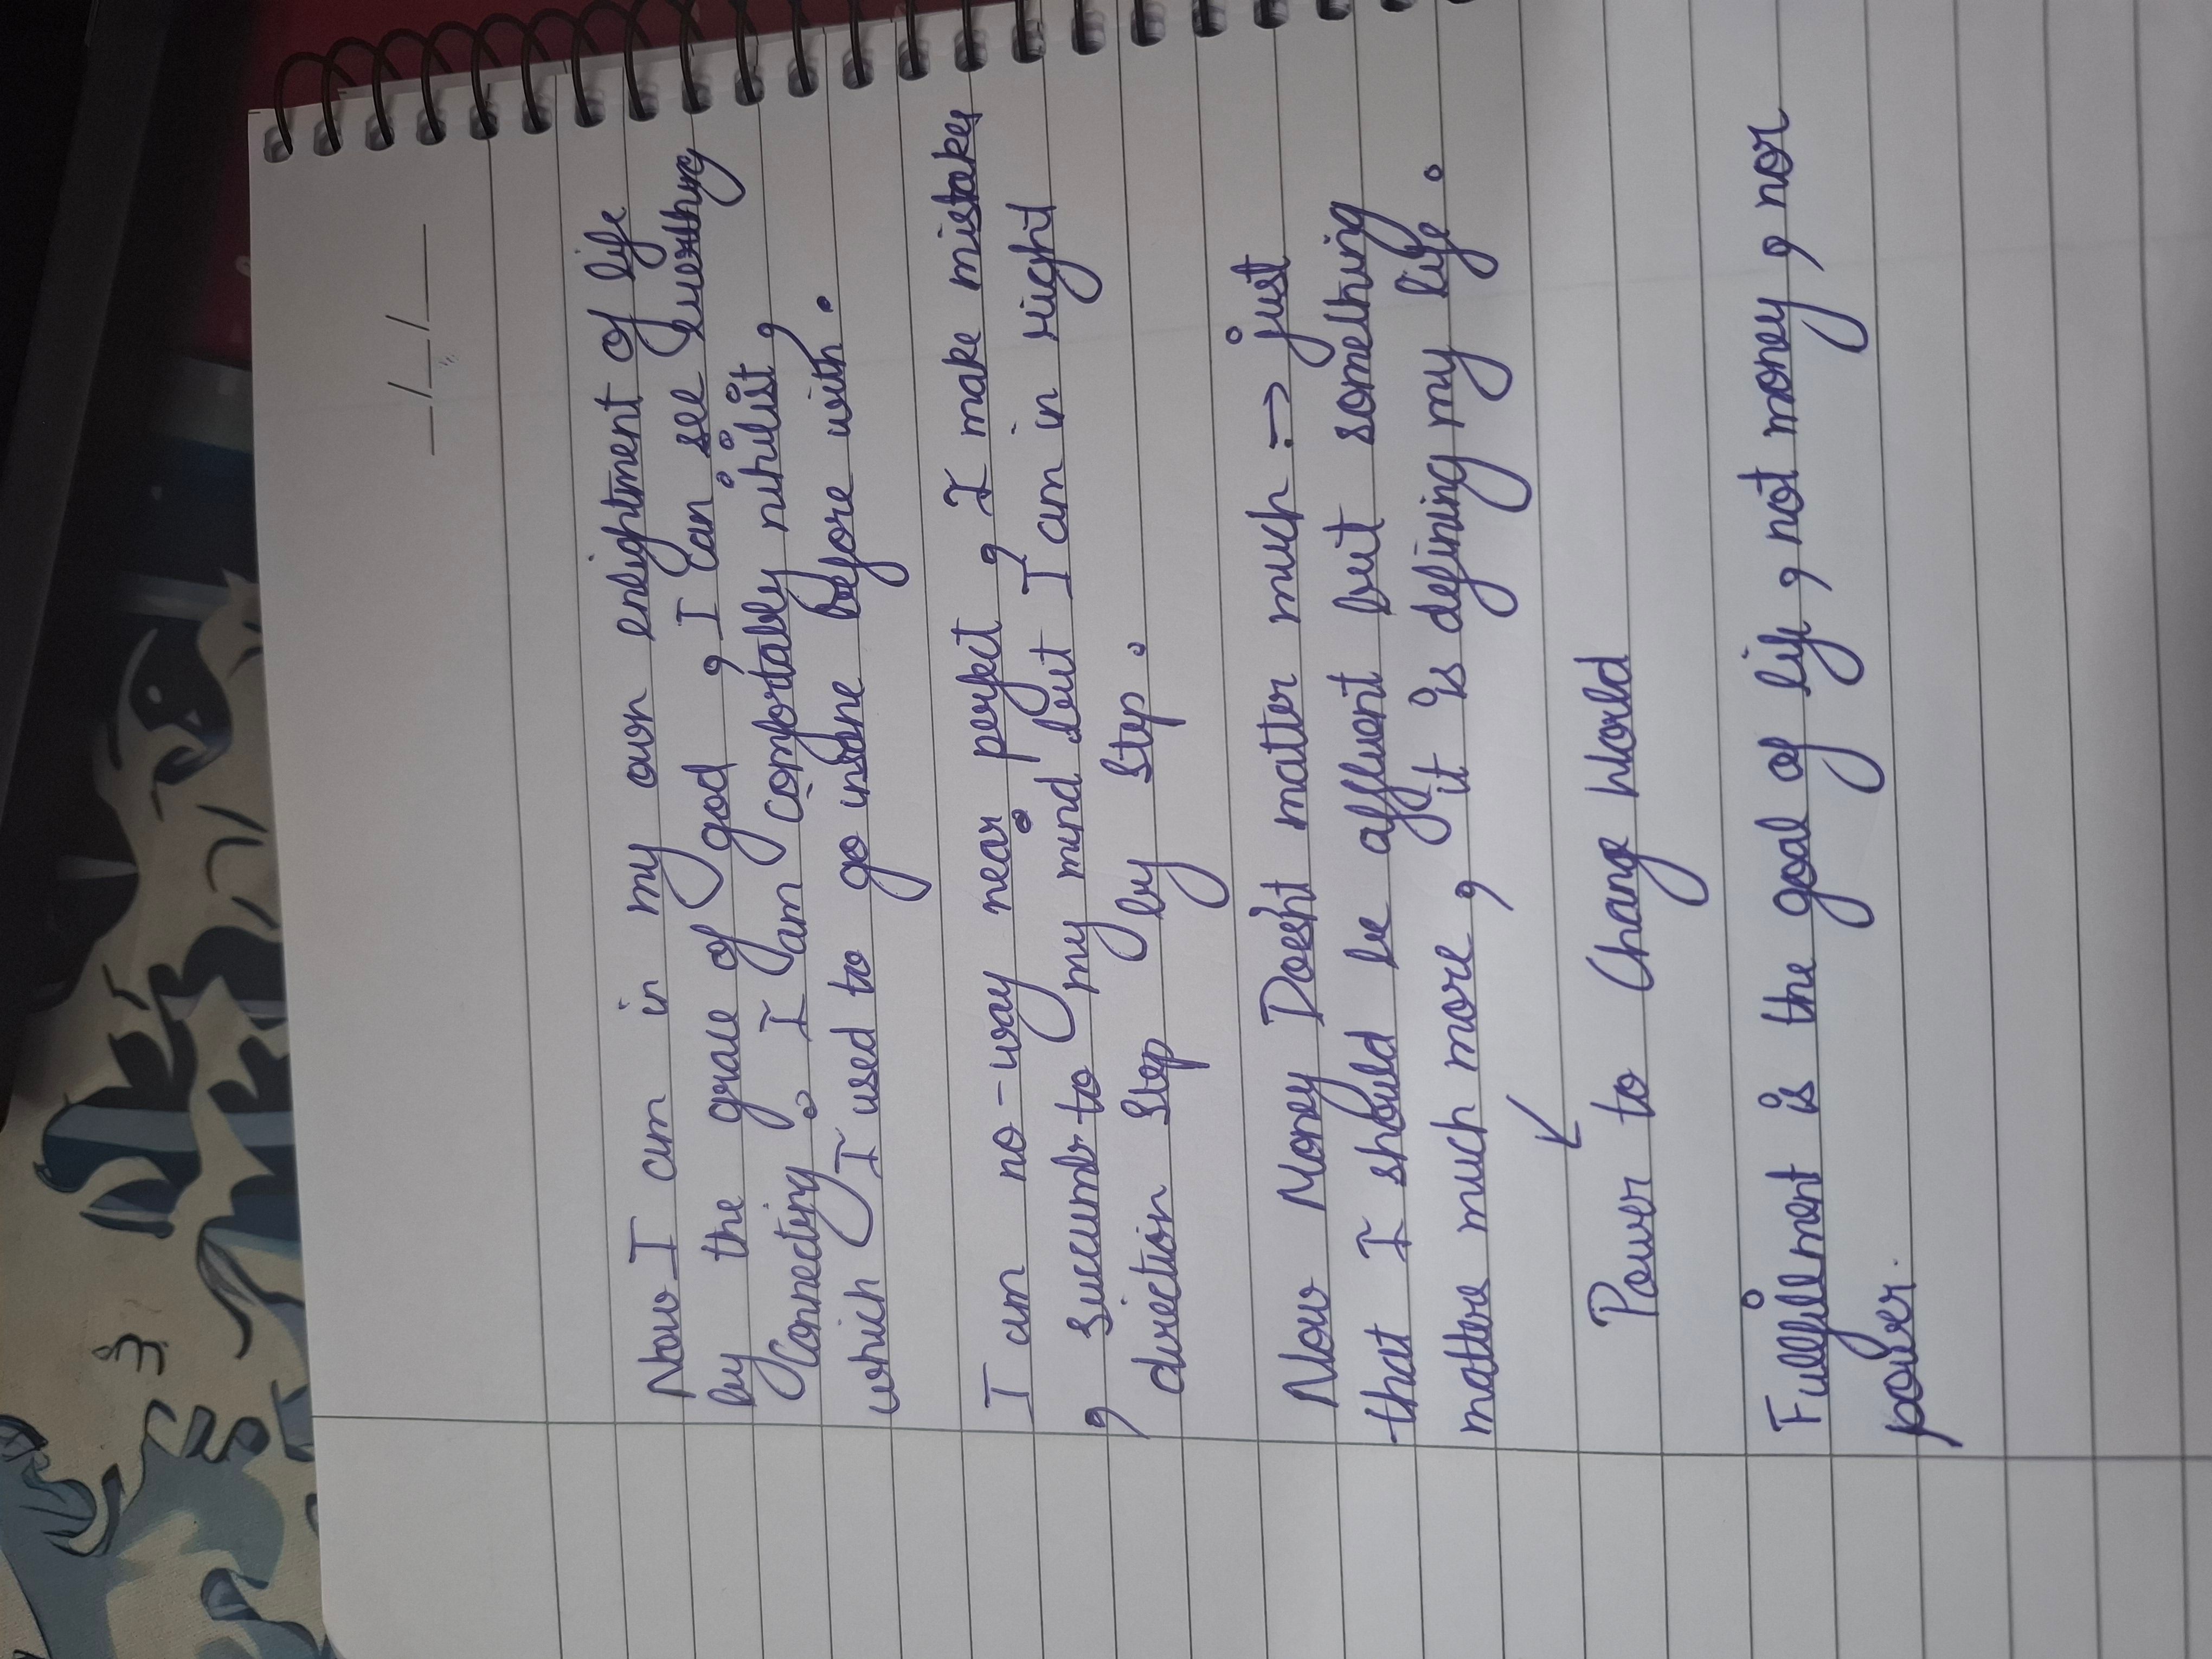 __/__/__
Now I am in my own enlightment of life
by the grace of god , I can see everthing
connecting . I am comfortably nihilist ,
which I used to go insane before with .
I am no-way near perfect , I make mistakes
, succumb to my mind but I am in right
direction step by step .
Now Money Does'nt matter much :→ just
that I should be affluent but something
matters much more , it is defining my life .
↙
Power to Change World
Fullfillment is the goal of life , not money , nor
power.